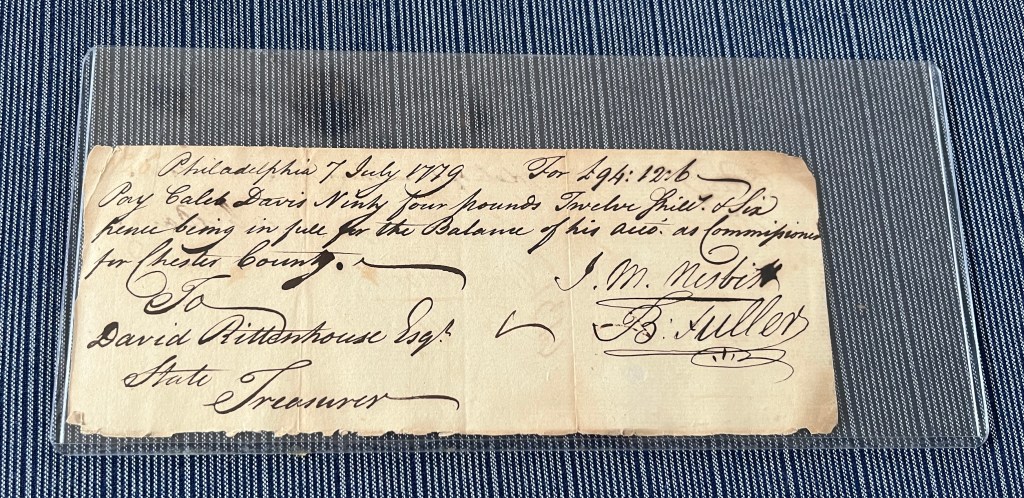 Philadelphia 7 July 1779 For £94:12:6
Pay Caleb Davis Ninty four pounds Twelve Shill.s & Six
pence being in full for the Balance of his acco.t as Commissioner
for Chester County.
J. M. Nesbitt
To
B: Fuller
David Rittenhouse Esq.r
State
Treasurer